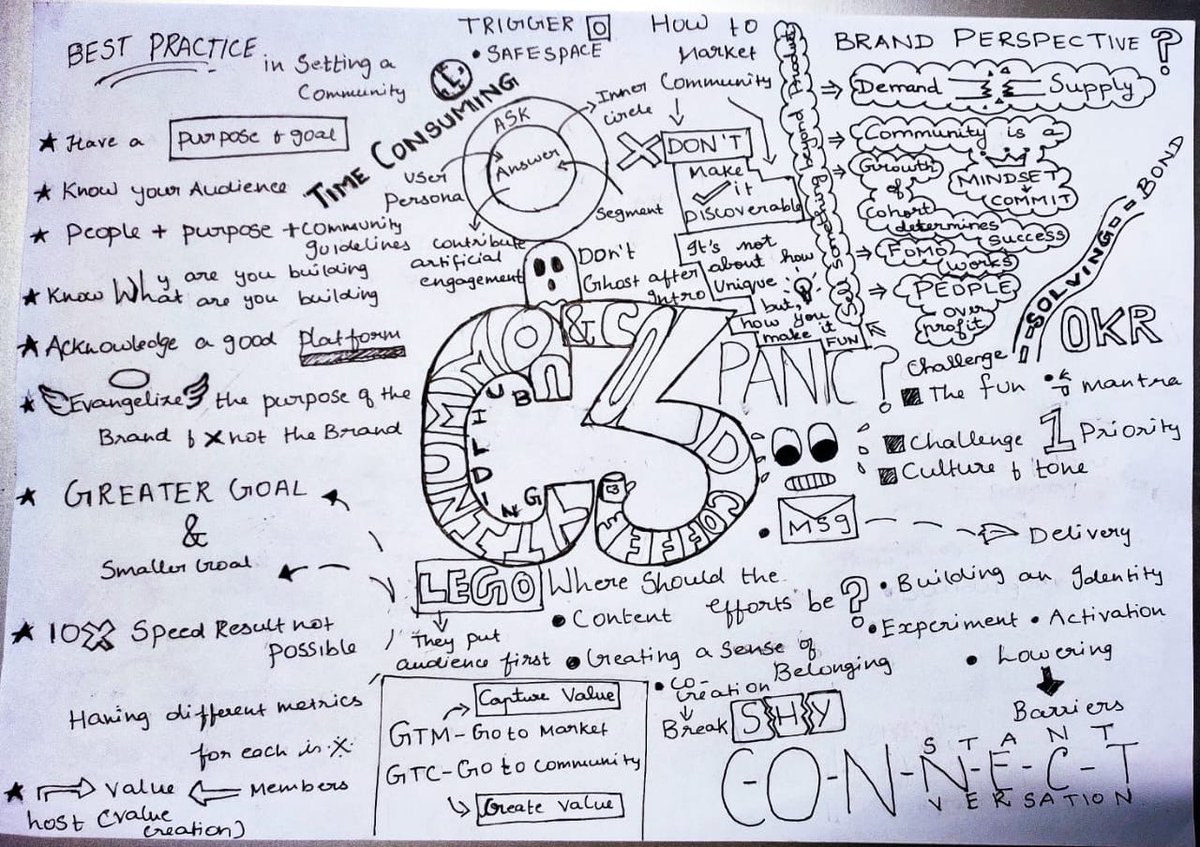 BEST PRACTICE
in Setting a
Community
★ Have a purpose & goal
★ Know your Audience
★ People + purpose + community
guidelines
★ Know Why are you building
What are you building
★ Acknowledge a good Platform
★ Evangelize the purpose of the
Brand & X not the Brand
★ GREATER GOAL
&
Smaller Goal
★ 10X Speed Result not
possible
Having different metrics
for each is
★ Value Members
host (value
creation)
TRIGGER
• SAFESPACE
TIME CONSUMING
ASK
Answer
Inner
circle
User
Persona
Segment
contribute
artificial
engagement
Don't
Ghost after
intro
How to
Market
Community
DON'T
Make
it
Discoverable
It's not
about how
Unique
but,
how you
make it
FUN
COMMUNITY
BUILDING
& COVID
COFFEE
C3
LEGO
They put
audience first
Where should the
efforts be ?
• Content
• Creating a sense of
Belonging
• Co-
creation
Break SHY
Capture Value
GTM - Go to Market
GTC - Go to Community
Create Value
BRAND PERSPECTIVE ?
⇒ Demand Supply
⇒ Community is a
MINDSET
COMMIT
⇒ Growth
of
Cohort
determines
success
⇒ FOMO
works
⇒ PEOPLE
over
profit
SOLVING
BOND
OKR
PANIC ?
Challenge
The fun mantra
Challenge 1 Priority
Culture & tone
• MSG
Delivery
• Building an Identity
• Experiment • Activation
• Lowering
Barriers
STANT
C-O-N-N-E-C-T
VERSATION